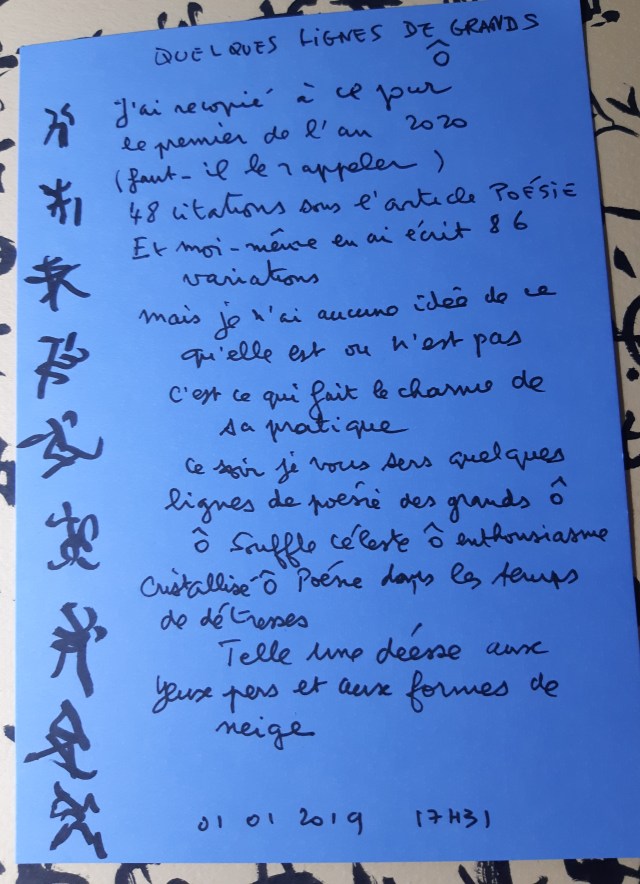 QUELQUES LIGNES DE GRANDS
Ô
J'ai recopié à ce jour
le premier de l'an 2020
(faut-il le rappeler)
48 citations sous l'article POÉSIE
Et moi-même en ai écrit 86
variations
mais je n'ai aucune idée de ce
qu'elle est ou n'est pas
C'est ce qui fait le charme de
sa pratique
Ce soir je vous sers quelques
lignes de poésie des grands ô
ô Souffle céleste ô enthousiasme
Cristallise ô Poésie dans les temps
de détresses
Telle une déesse aux
yeux pers et aux formes de
neige
01 01 2019 17H31